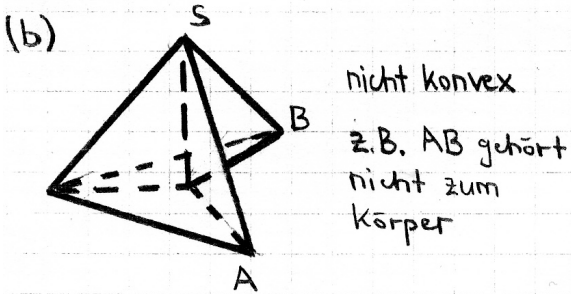 (b)
S
nicht konvex
B
z.B. AB gehört
nicht zum
Körper
A